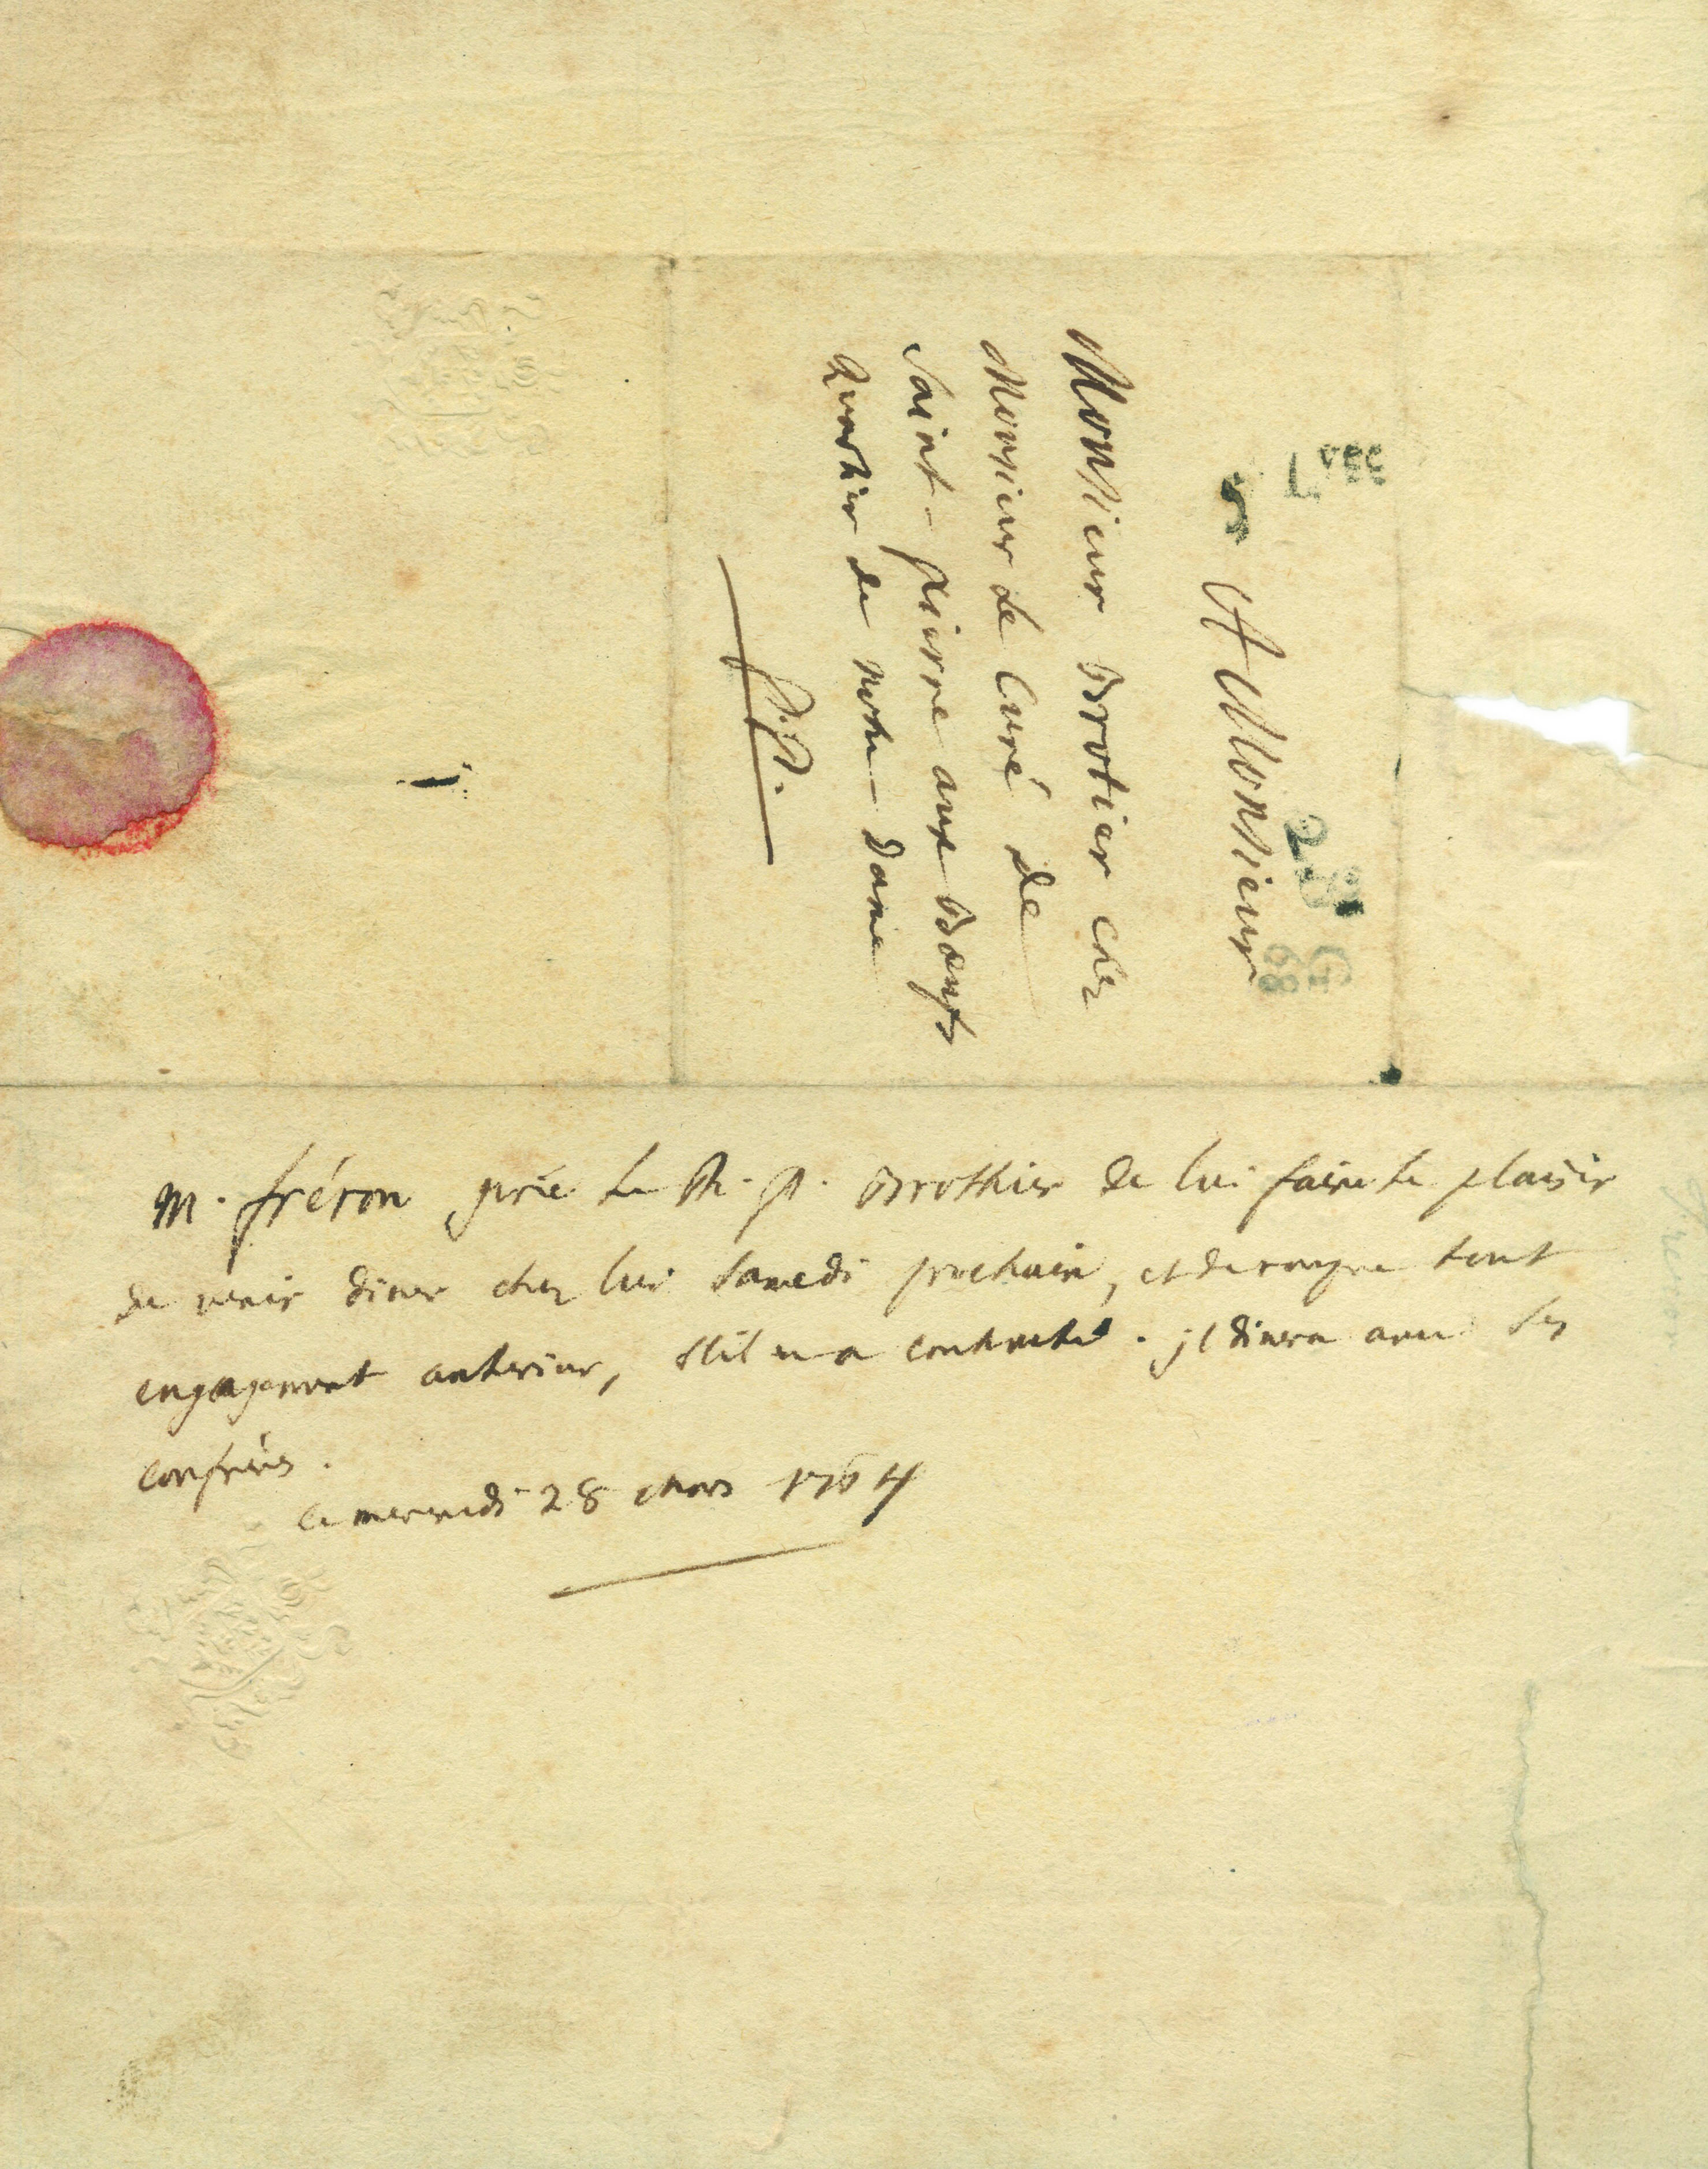 A Monsieur
Monsieur Brotier chez
Monsieur le Curé de
Saint-pierre aux Boeufs
Quartier de notre-Dame
p.p.
Lvée
5
28
G
m. fréron prie le R. P. Brothier de lui faire le plaisir
de venir diner chez lui Samedi prochain, et de rompre tout
engagement anterieur, s'il en a contracté. jl dinera avec Ses
confrères.
ce mercredi 28 Mars 1764